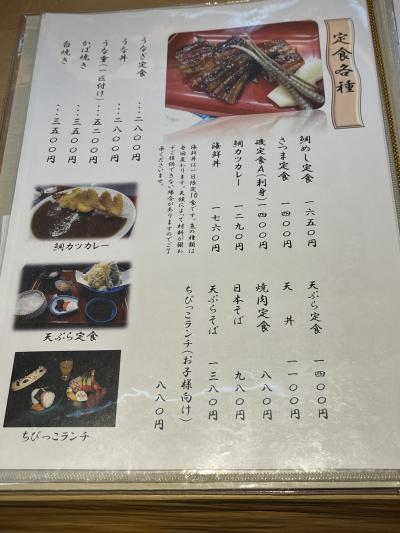 定食各種
鯛めし定食 一六五〇円
さつま定食 一四〇〇円
磯定食A(刺身) 一四〇〇円
鯛カツカレー 一二九〇円
海鮮丼 一七六〇円
海鮮丼は一日限定10食です。魚の種類は
毎回変わります。天候によって材料が揃わ
ずご提供できない場合がありますのでご了
承くださいませ。
天ぷら定食 一四〇〇円
天丼 一一〇〇円
焼肉定食 八八〇円
日本そば 九八〇円
天ぷらそば 一三八〇円
ちびっこランチ(お子様向け)
八八〇円
うなぎ定食 ・・・二八〇〇円
うな丼 ・・・二八〇〇円
うな重(一匹付け) ・・・五二〇〇円
かば焼き ・・・三五〇〇円
白焼き ・・・三五〇〇円
鯛カツカレー
天ぷら定食
ちびっこランチ